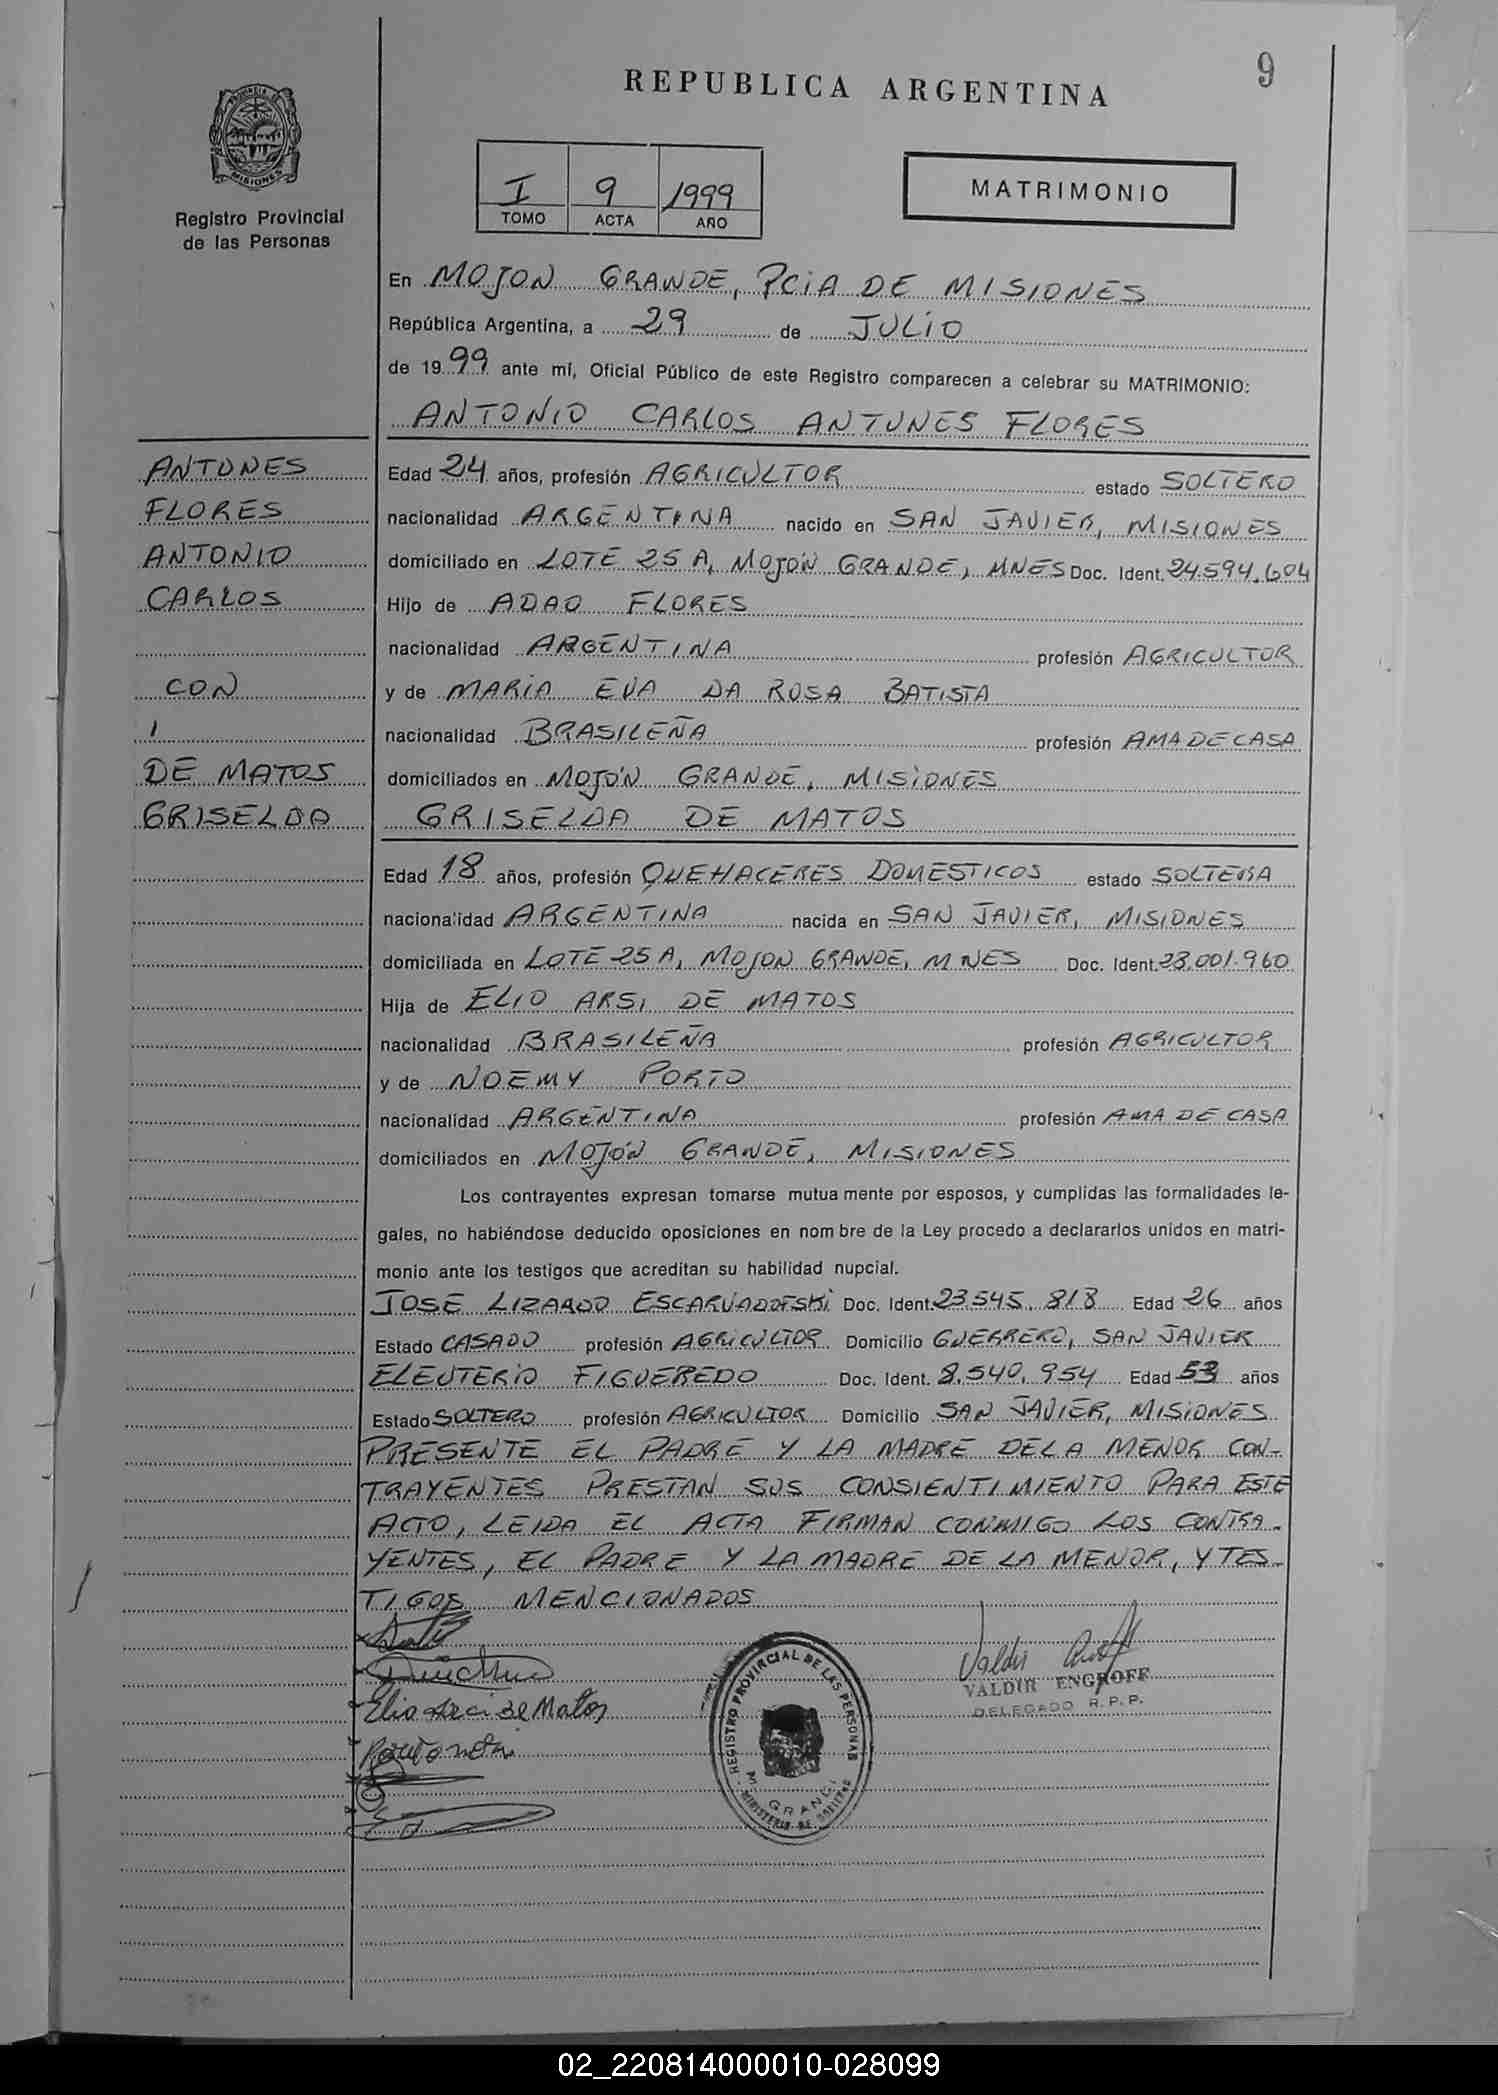 9
REPUBLICA ARGENTINA
PROVINCIA DE
MISIONES
Registro Provincial
de las Personas
I 9 1999
TOMO ACTA AÑO
MATRIMONIO
En MOJON GRANDE, PCIA DE MISIONES
República Argentina, a 29 de JULIO
de 1999 ante mí, Oficial Público de este Registro comparecen a celebrar su MATRIMONIO:
ANTONIO CARLOS ANTUNES FLORES
ANTUNES
FLORES
ANTONIO
CARLOS
CON
DE MATOS
GRISELDA
Edad 24 años, profesión AGRICULTOR estado SOLTERO
nacionalidad ARGENTINA nacido en SAN JAVIER, MISIONES
domiciliado en LOTE 25 A, MOJÓN GRANDE, MNES Doc. Ident. 24.594.604
Hijo de ADAO FLORES
nacionalidad ARGENTINA profesión AGRICULTOR
y de MARIA EVA DA ROSA BATISTA
nacionalidad BRASILEÑA profesión AMA DE CASA
domiciliados en MOJÓN GRANDE, MISIONES
GRISELDA DE MATOS
Edad 18 años, profesión QUEHACERES DOMESTICOS estado SOLTERA
nacionalidad ARGENTINA nacida en SAN JAVIER, MISIONES
domiciliada en LOTE 25 A, MOJON GRANDE, MNES Doc. Ident. 28.001.960
Hija de ELIO ARSI DE MATOS
nacionalidad BRASILEÑA profesión AGRICULTOR
y de NOEMY PORTO
nacionalidad ARGENTINA profesión AMA DE CASA
domiciliados en MOJÓN GRANDE, MISIONES
Los contrayentes expresan tomarse mutua mente por esposos, y cumplidas las formalidades le-
gales, no habiéndose deducido oposiciones en nom bre de la Ley procedo a declararlos unidos en matri-
monio ante los testigos que acreditan su habilidad nupcial.
JOSE LIZARDO Doc. Ident. 23.545.818 Edad 26 años
Estado CASADO profesión AGRICULTOR Domicilio GUERRERO, SAN JAVIER
ELEUTERIO FIGUEREDO Doc. Ident. 8.540.954 Edad 53 años
Estado SOLTERO profesión AGRICULTOR Domicilio SAN JAVIER, MISIONES
PRESENTE EL PADRE Y LA MADRE DE LA MENOR CON-
TRAYENTES PRESTAN SUS CONSIENTIMIENTO PARA ESTE
ACTO, LEIDA EL ACTA FIRMAN CONMIGO LOS CONTRA-
YENTES, EL PADRE Y LA MADRE DE LA MENOR, Y TES-
TIGOS MENCIONADOS
Elio Arci de Matos
REGISTRO PROVINCIAL DE LAS PERSONAS
M. GRANDE
MINISTERIO DE
Valdir
VALDIR ENGROFF
DELEGADO R.P.P.
02_220814000010-028099